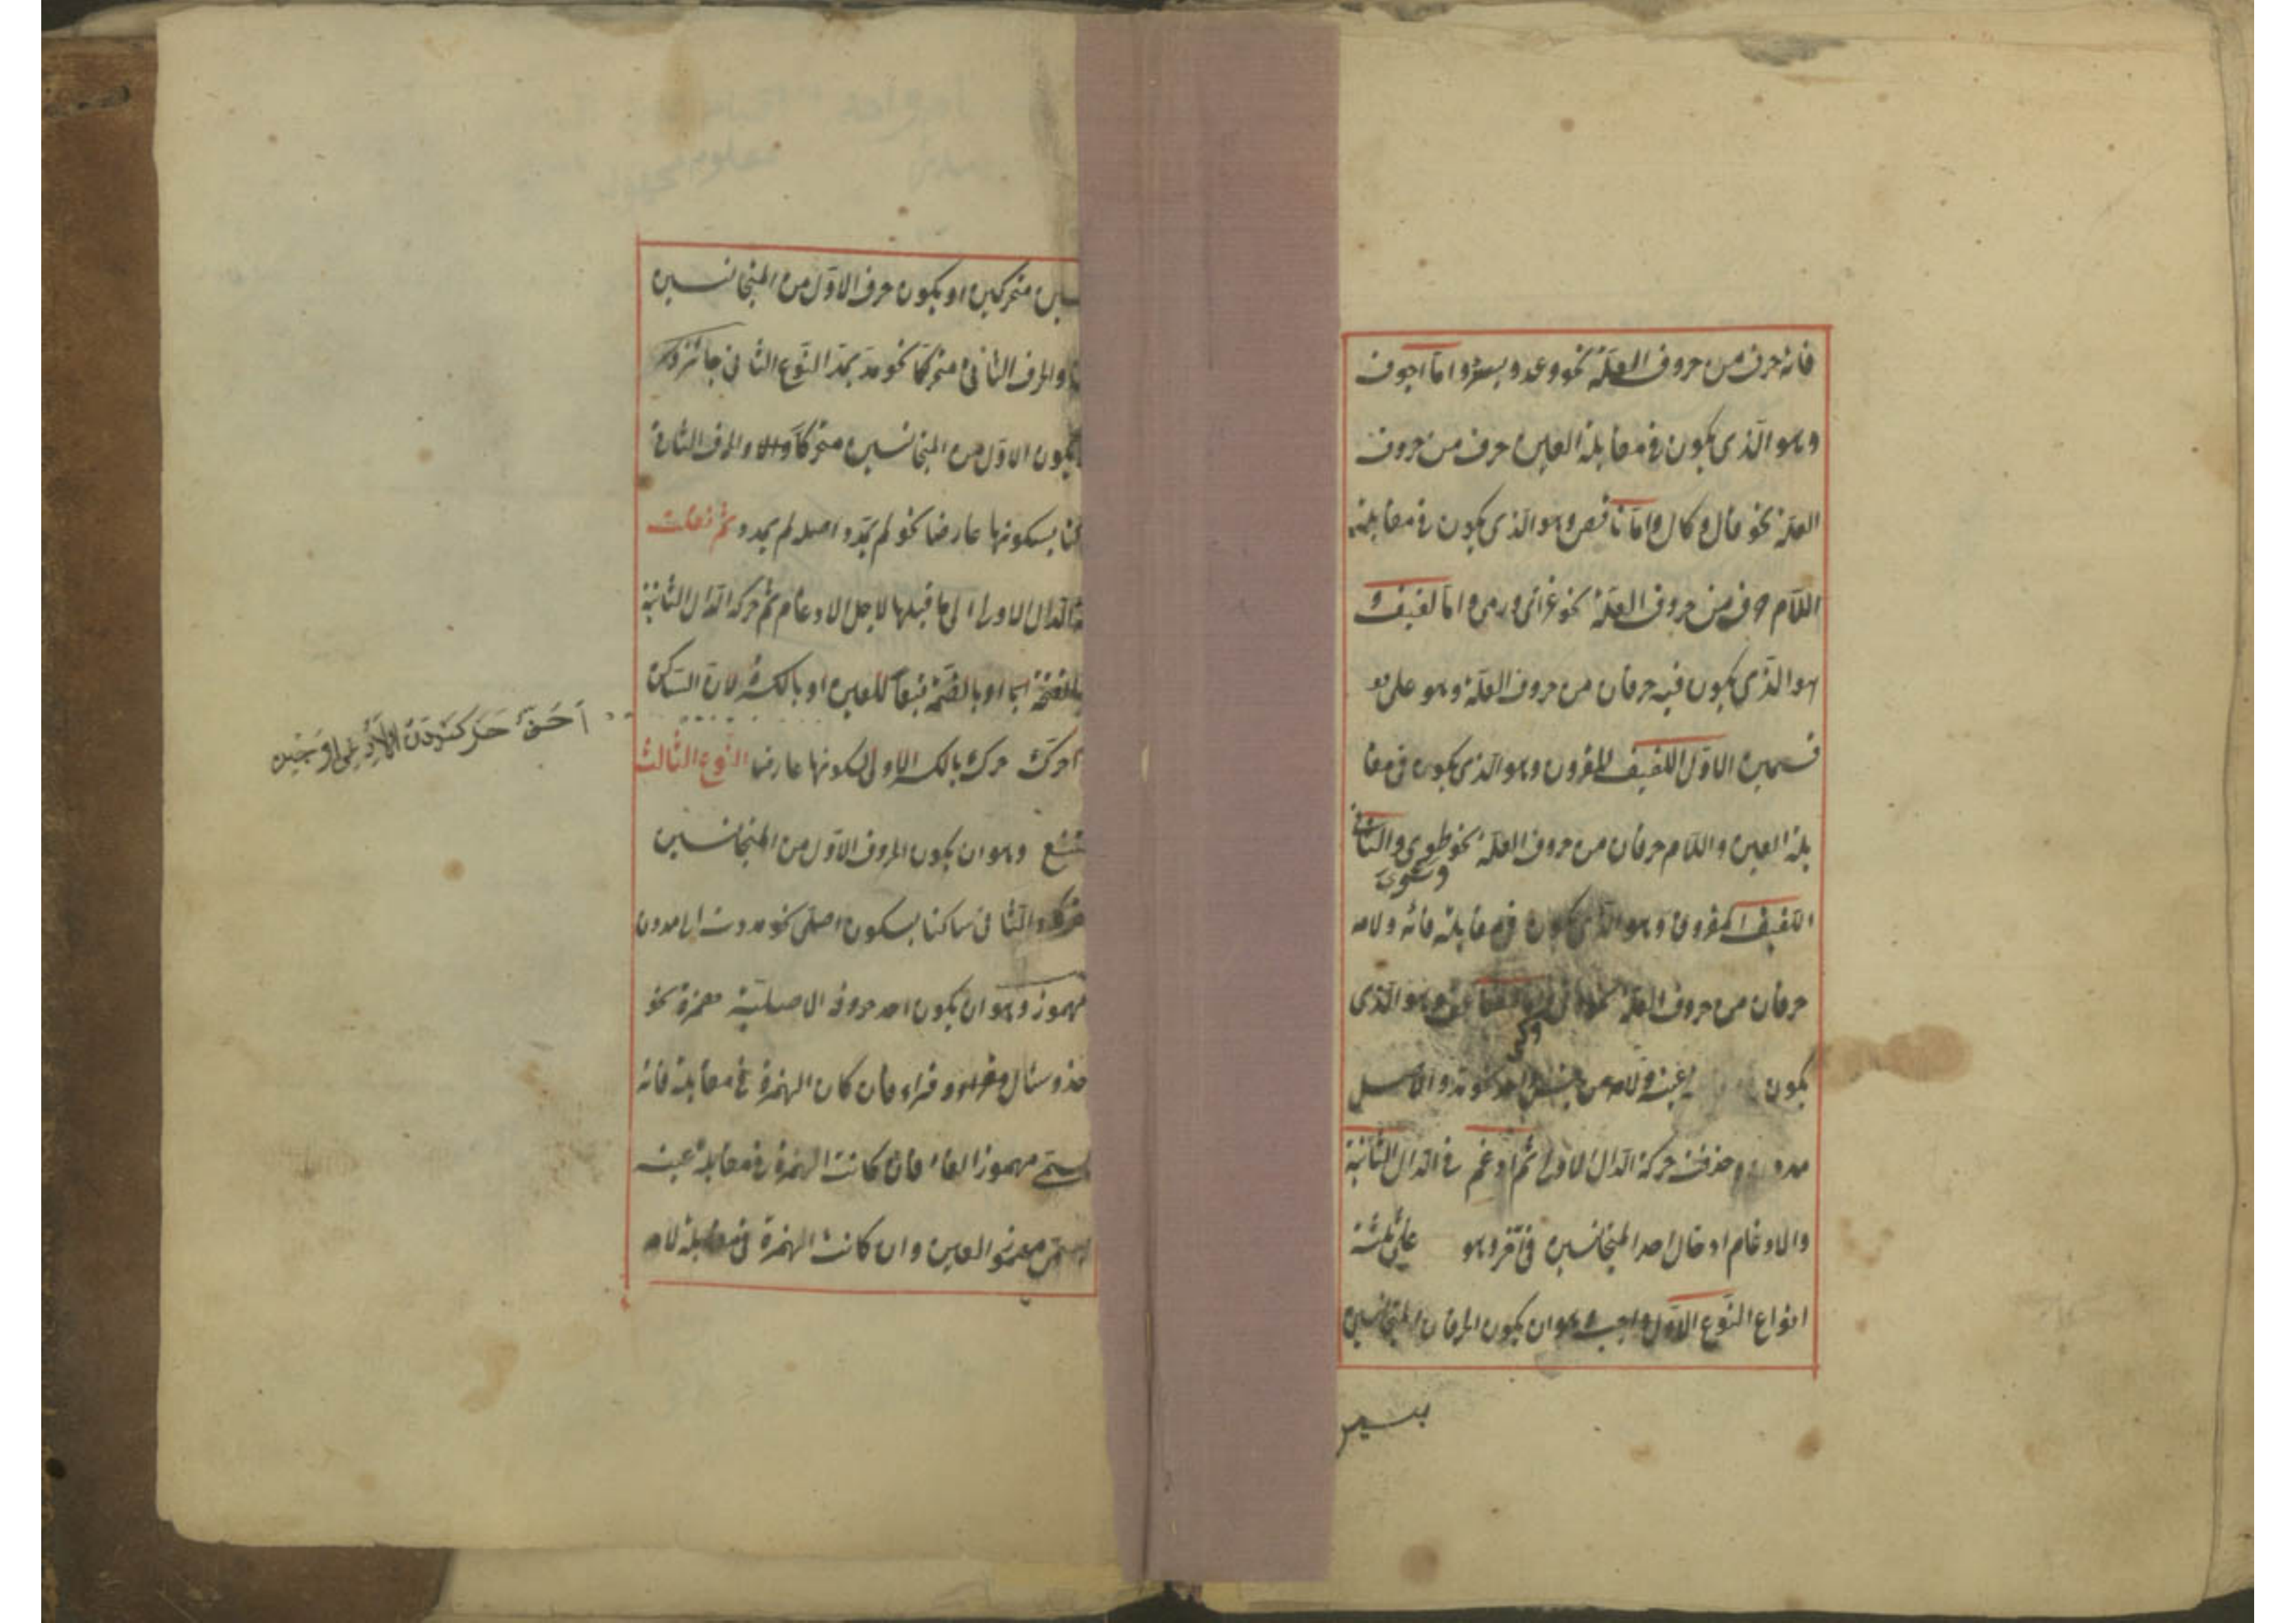 فائه حرف من حروف العلة نحو وعد ويسر واما اجوف
وهو الذى يكون فى مقابلة العين حرف من حروف
العلة نحو قال و كال واما ناقص وهو الذى يكون فى مقابلة
اللام حرف من حروف العلة نحو غزا ورمى واما لفيف و
هو الذى يكون فيه حرفان من حروف العلة وهو على
قسمين الاول اللفيف المقرون وهو الذى يكون فى مقا
بلة العين واللام حرفان من حروف العلة نحو طوى والثانى
اللفيف المفروق وهو الذى يكون فى مقابلة فائه ولامه
حرفان من حروف العلة وهو الذى
يكون عينه ولامه من جنس واحد نحو مد والاصل
مدد وحذفت حركة الدال الاولى ثم ادغم فى الدال الثانية
والادغام ادخال احد المتجانسين فى آخر وهو على ثلثة
انواع النوع الاول واجب وهو ان يكون الحرفان المتجانسين
متحركين او يكون حرف الاول من المتجانسين
والحرف الثانى متحركا نحو مد يمد النوع الثانى جائز وهو
يكون الاول من المتجانسين متحركا والحرف الثانى
بسكونها عارضا نحو لم يمد واصله لم يمدد ثم نقلت
الدال الاولى الى ما قبلها لاجل الادغام ثم حركة الدال الثانية
او بالضمة تبعا للعين او بالكسرة لان الساكن
حرك بالكسر الاولى لسكونها عارضا النوع الثالث
وهو ان يكون الحروف الاول من المتجانسين
والثانى ساكنا بسكون اصلى نحو مددت الى مددن
مهموز وهو ان يكون احد حروفه الاصلية همزة نحو
وسئال وقراء فان كان الهمزة فى مقابلة فائه
مهموز الفاء فان كانت الهمزة فى مقابلة عينه
العين وان كانت الهمزة فى مقابلة لامه